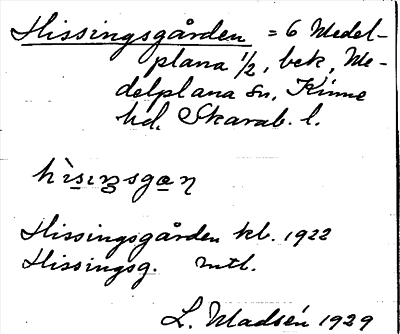 Hissingsgården = 6 Medel-
plana 1/2, bek, Me-
delplana sn, Kinne
hd. Skarab. l.
hìsıŋsgaɳ
Hissingsgården kb. 1922
Hissingsg. mtl.
L. Madsén 1929